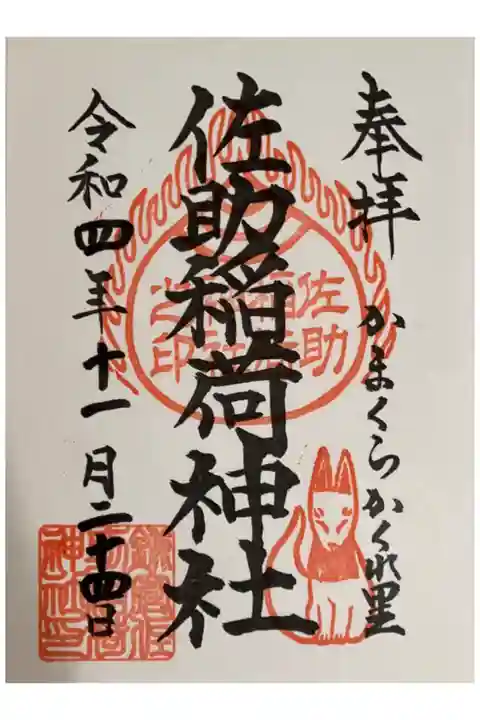 奉拝
かまくらかくれ里
佐助稲荷神社
佐助
稲荷
之印
令和四年十一月二十四日